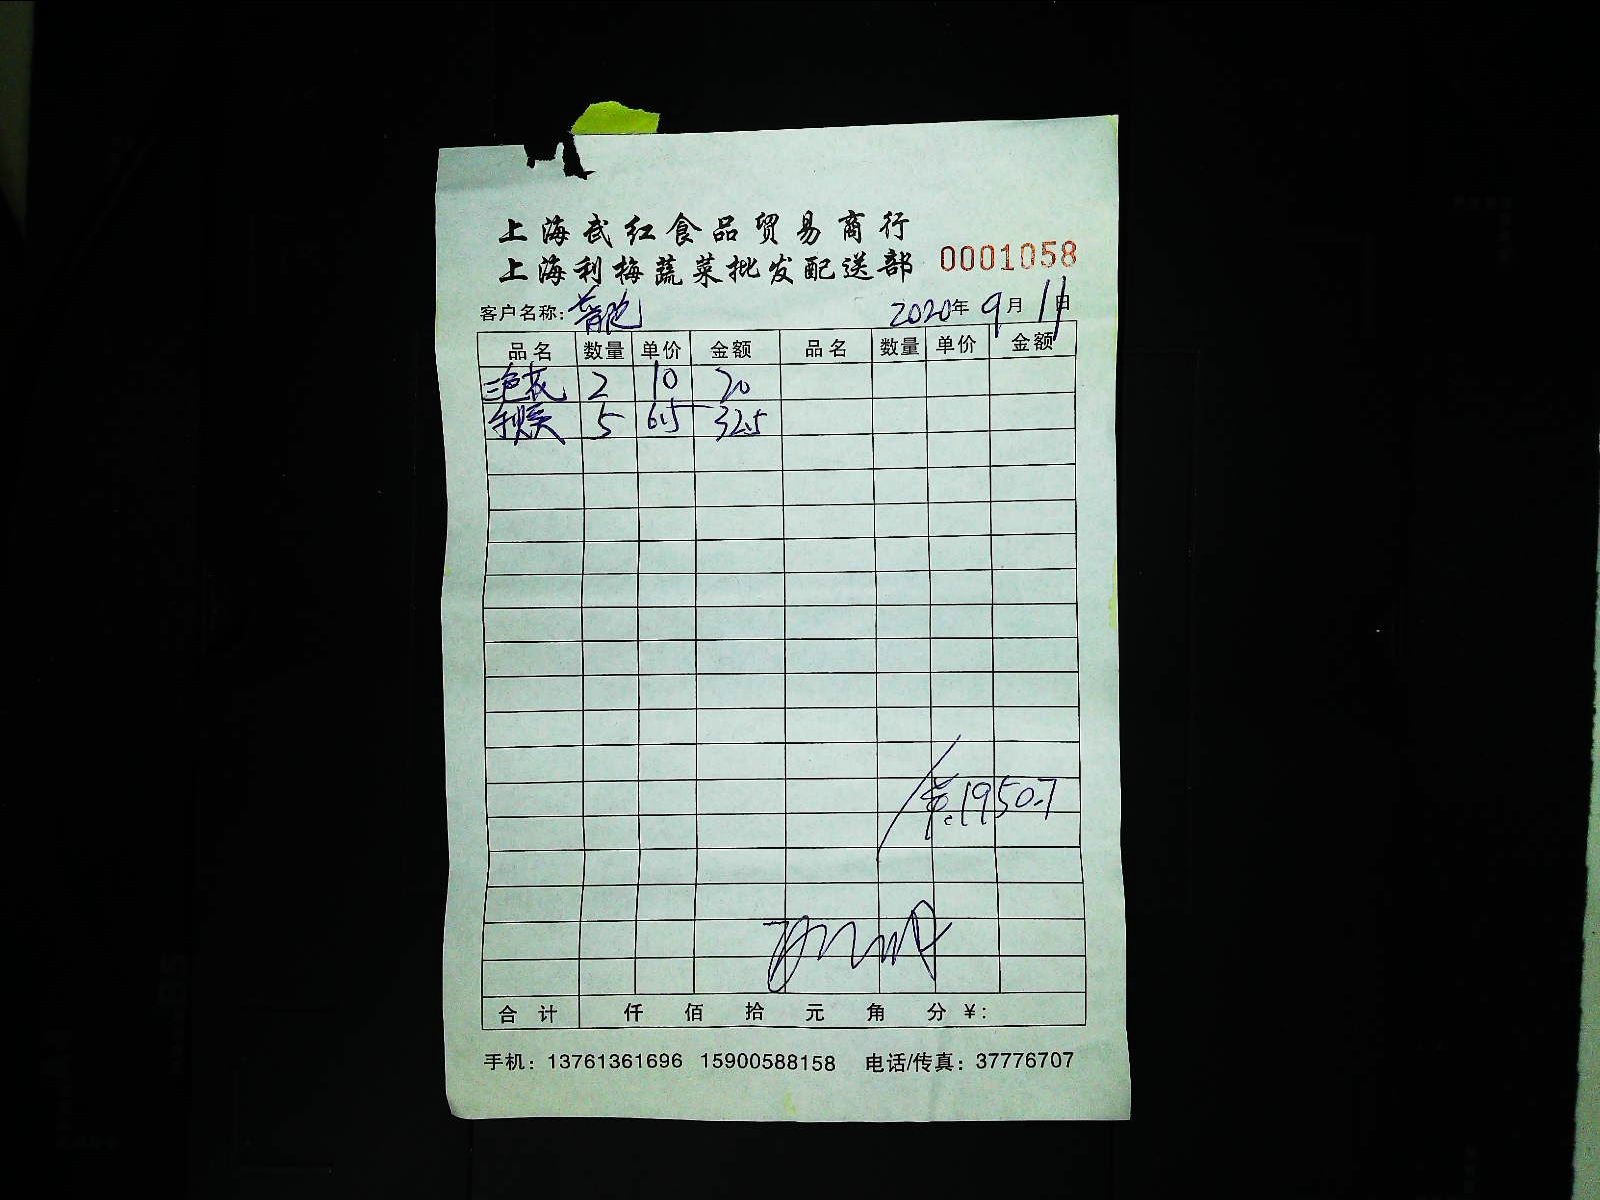 上海武红食品贸易商行
上海利梅蔬菜批发配送部 0001058
客户名称: 2020年9月11日
品名 数量 单价 金额 品名 数量 单价 金额
三色衣 2 10 20
秋葵 5 6.5 32.5
1950.7
合计 仟 佰 拾 元 角 分 ¥:
手机: 13761361696 15900588158 电话/传真: 37776707